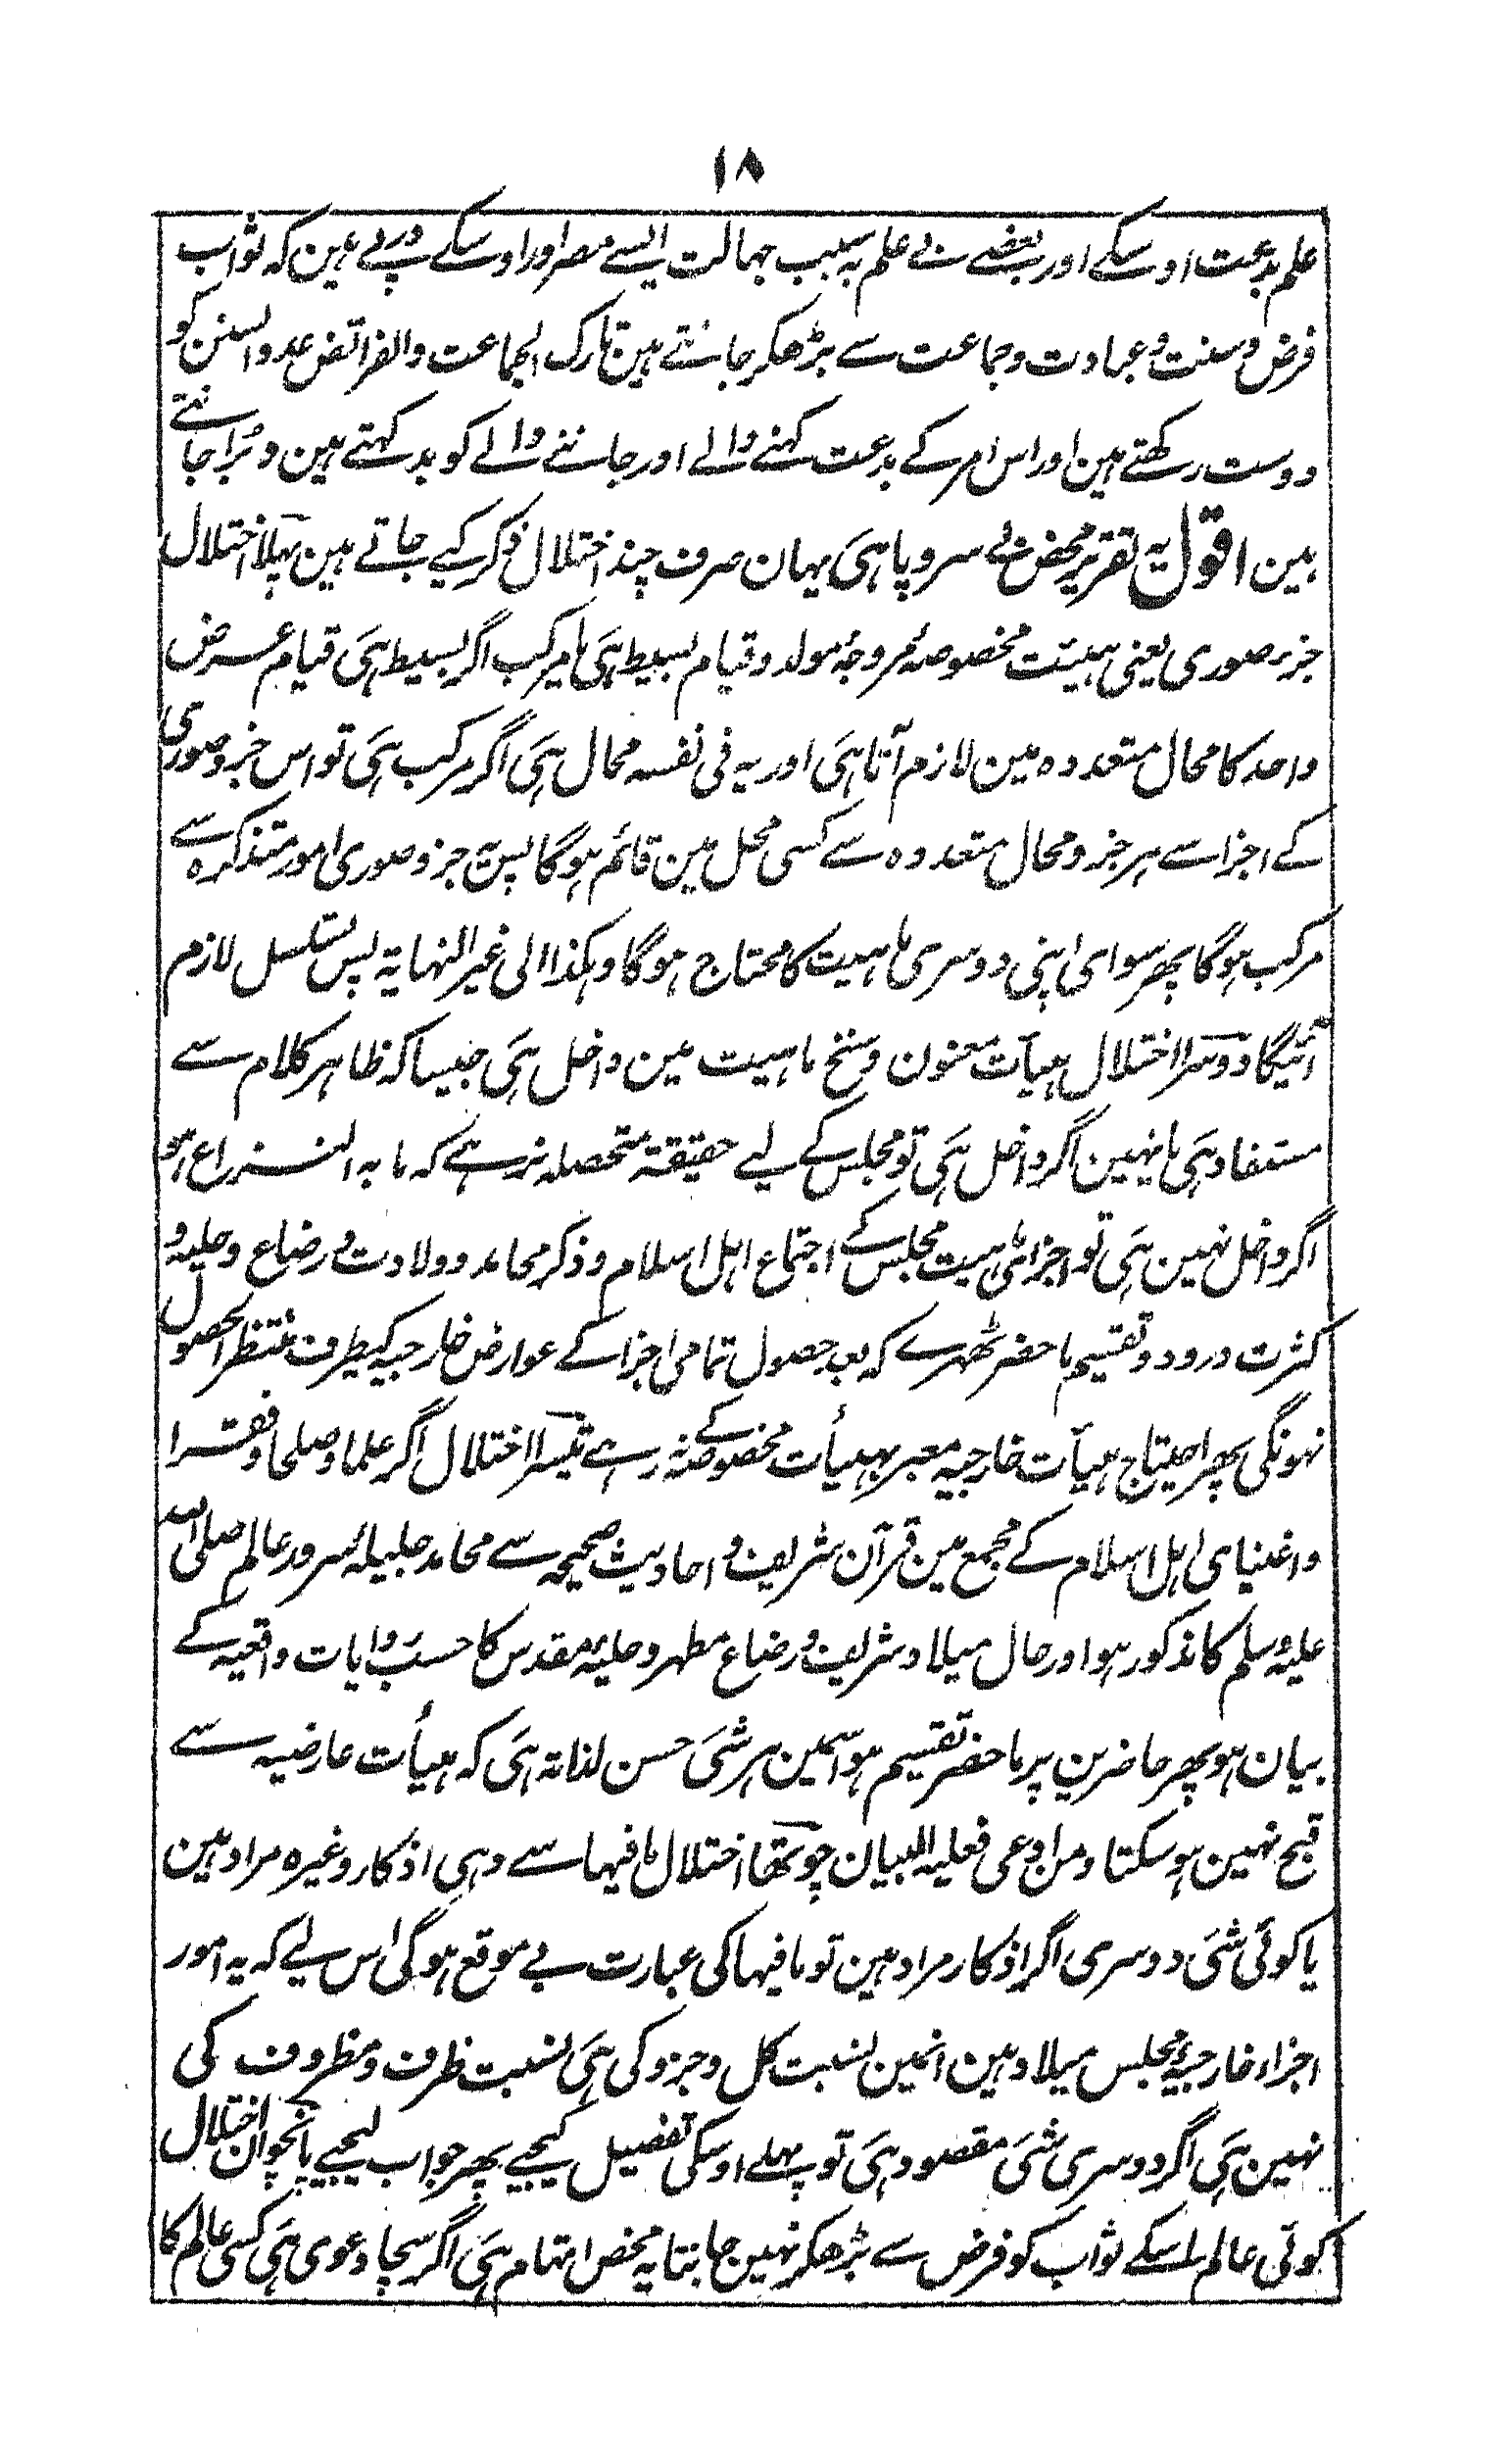 ١٨
علم بدعت اوسکے اور بعضے بے علم بہ سبب جہالت ایسے مصر اور اوسکے درپے ہین کہ ثواب
فرض و سنت و عبادت و جماعت سے بڑھکر جانتے ہین تارک الجماعت والفرائض عدو السنن کو
دوست رکھتے ہین اور اس امر کے بدعت کہنے والے اور جاننے والے کو بد کہتے ہین و بُرا جانتے
ہین اقول یہ تقریر محض بے سروپا ہی یہان صرف چند اختلال ذکر کیے جاتے ہین پہلا اختلال
جزء صوری یعنی ہیئت مخصوصۂ مروجۂ مولد و قیام بسیط ہی یا مرکب اگر بسیط ہی قیام عرض
واحد کا محال متعددہ مین لازم آتا ہی اور یہ فی نفسہ محال ہی اگر مرکب ہی تو اس جزو صوری
کے اجزا سے ہر جزو محال متعددہ سے کسی محل مین قائم ہوگا پس یہ جزو صوری امور متذکرہ سے
مرکب ہوگا پھر سوای اپنی دوسری ماہیت کا محتاج ہوگا وہکذا الی غیر النہایۃ پس تسلسل لازم
آئیگا دوسرا اختلال ہیآت معنون و سنخ ماہیت مین داخل ہی جیسا کہ ظاہر کلام سے
مستفاد ہی یا نہین اگر داخل ہی تو مجلس کے لیے حقیقۃ متحصلہ نرہے کہ ما بہ النزاع ہو
اگر داخل نہین ہی تو اجزای ماہیت مجلس کے اجتماع اہل اسلام و ذکر محامد و ولادت و رضاع و حلیہ و
کثرت درود و تقسیم ماحضر ٹھہرے کہ بعد حصول تمامی اجزا کے عوارض خارجیہ کیطرف منتظر الحصول
نہونگی پھر احتیاج ہیآت خارجیہ معبر بہیأت مخصوصہ کے نرہے تیسرا اختلال اگر علما و صلحا و فقرا
و اغنیای اہل اسلام کے مجمع مین قرآن شریف و احادیث صحیحہ سے محامد جلیلۂ سرور عالم صلی اللہ
علیہ وسلم کا مذکور ہو اور حال میلاد شریف و رضاع مطہر و حلیۂ مقدس کا حسب روایات واقعیہ کے
بیان ہو پھر حاضرین پر ماحضر تقسیم ہو اسمین ہر شی حسن لذاتہ ہی کہ ہیأت عارضیہ سے
قبیح نہین ہو سکتا ومن ادعی فعلیہ البیان چوتھا اختلال مافیہا سے وہی اذکار وغیرہ مراد ہین
یا کوئی شی دوسری اگر اذکار مراد ہین تو مافیہا کی عبارت بے موقع ہوگی اس لیے کہ یہ امور
اجزاء خارجیۂ مجلس میلاد ہین انمین نسبت کل و جزو کی ہی نسبت ظرف و مظروف کی
نہین ہی اگر دوسری شی مقصود ہی تو پہلے اوسکی تفصیل کیجیے پھر جواب لیجیے پانچوان اختلال
کوئی عالم اسکے ثواب کو فرض سے بڑھکر نہین جانتا یہ محض اتہام ہی اگر سچا دعوی ہی کسی عالم کا